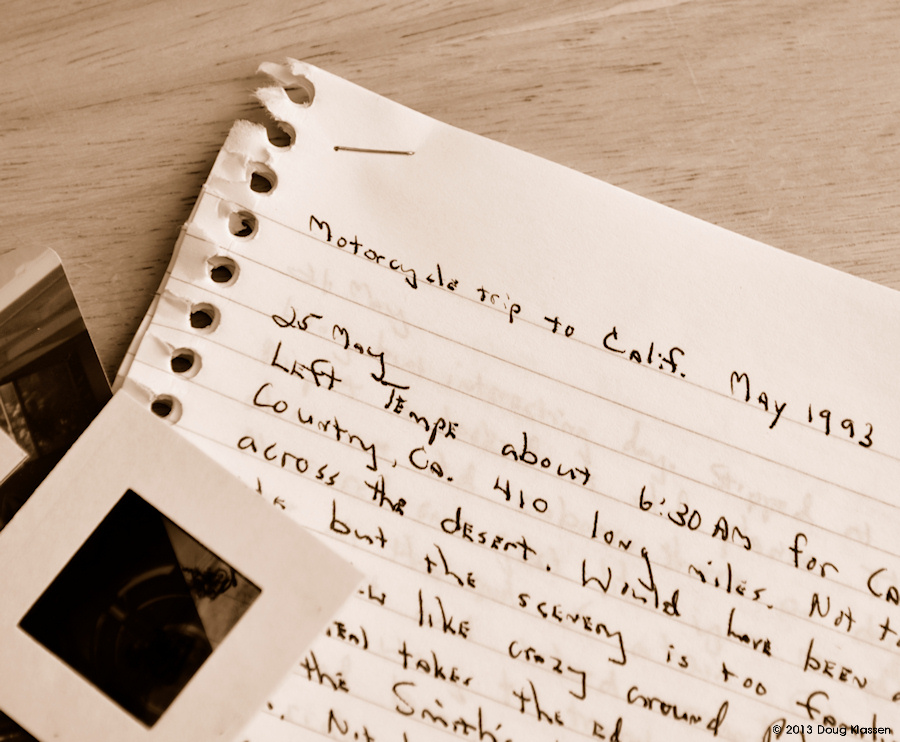 Motorcycle trip to Calif. May 1993
25 May
Left Tempe about 6:30 AM for
Country, Ca. 410 long miles. Not
across the desert. Would have been
but the scenery is too
like crazy around
takes the Ed
the Smith
Not
© 2013 Doug Klassen